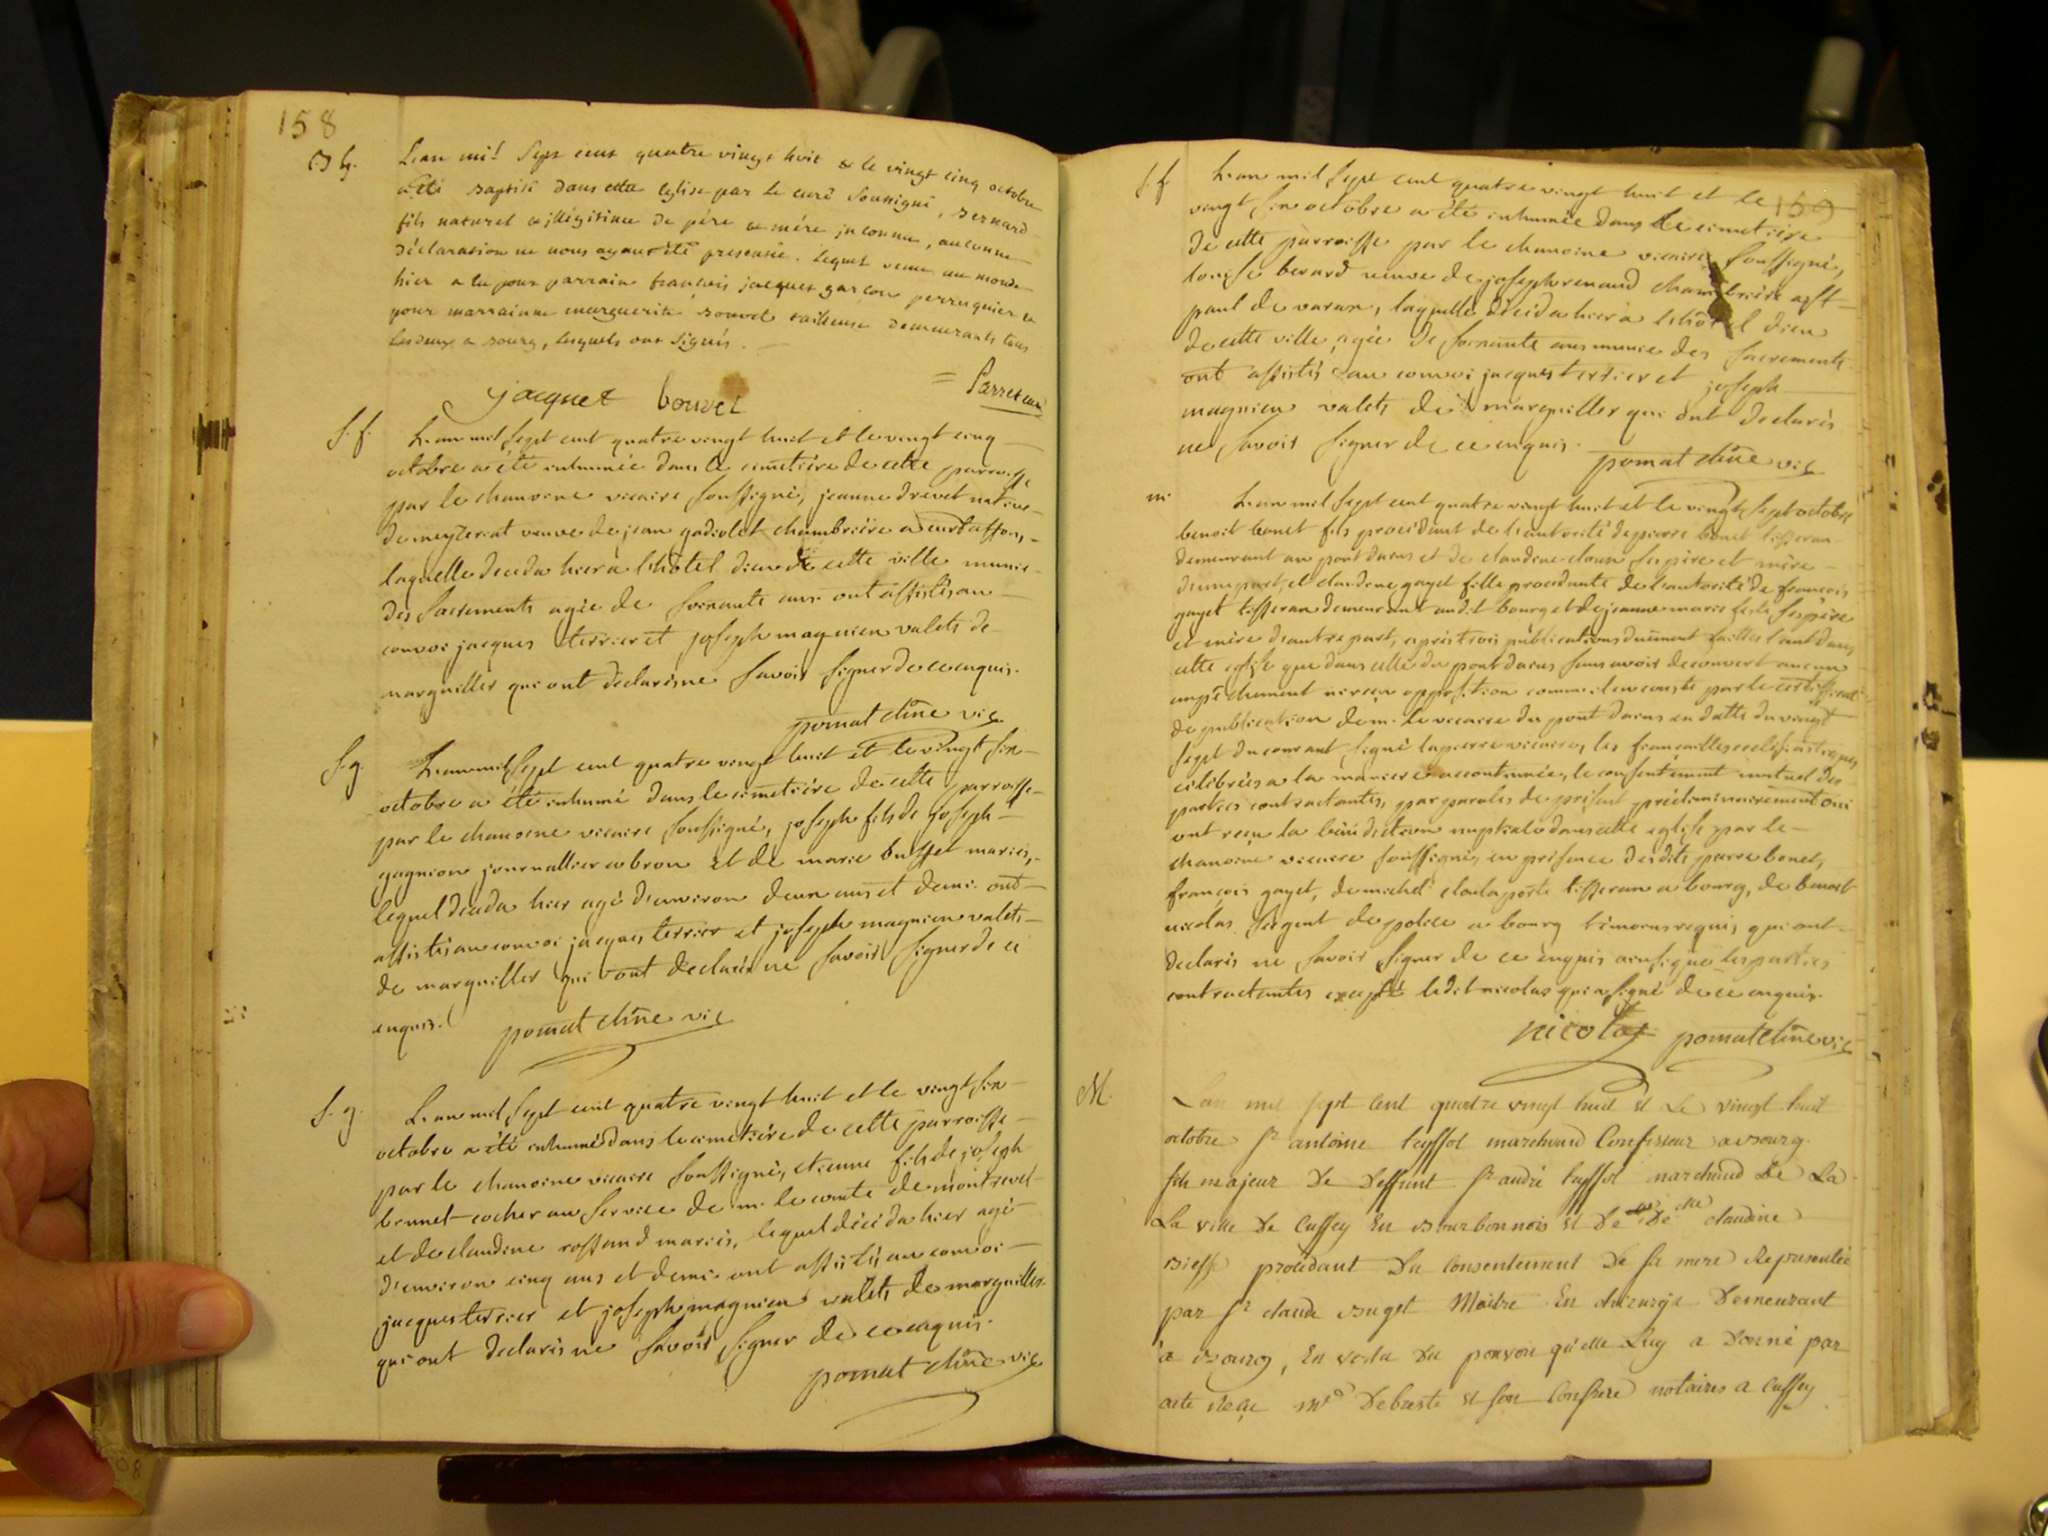 158
L'an mil sept cent quatre vingt huit & le vingt cinq octobre
a été baptisé dans cette eglise par le curé soussigné, bernard
fils naturel & illégitime de père & mère inconnu, aucunne
déclaration ne nous ayant été presentée. lequel venu au monde
hier a eu pour parrain françois jacquet garçon perruquier &
pour marrainne marguerite bouvet tailleuse demeurants tous
les deux a bourg, lesquels ont signés.
jacquet bouvet
s. f. L'an mil sept cent quatre vingt huit et le vingt cinq
octobre a été inhumée dans le cimetière de cette parroisse
par le chanoine vicaire soussigné, jeanne drevet native
de meyzeriat veuve de jean gadiolet chambrière a curtaffon,
laquelle deceda hier a lhôtel dieu de cette ville munie
des sacrements agée de soixante ans. ont assistés au
convoi jacques terrier et joseph magnien valets de
marguiller qui ont déclarés ne savoir signer de ce enquis.
pomat chne vic
s. g. L'an mil sept cent quatre vingt huit et le vingt six
octobre a été inhumé dans le cimetière de cette parroisse
par le chanoine vicaire soussigné, joseph fils de joseph
gagnion journallier a brou et de marie buffet mariés,
lequel deceda hier agé d'environ deux ans et demi. ont
assistés au convoi jacques terrier et joseph magnien valets
de marguiller qui ont declarés ne savoir signer de ce
enquis. pomat chne vic
s. g. L'an mil sept cent quatre vingt huit et le vingt six
octobre a été inhumé dans le cimetière de cette parroisse
par le chanoine vicaire soussigné, etienne fils de joseph
brunet cocher au service de m. le comte de montrevel
et de claudine rossand mariés, lequel décéda hier agé
d'environ cinq ans et demi. ont assistés au convoi
jacques terrier et joseph magnien valets de marguiller
qui ont declarés ne savoir signer de ce enquis.
pomat chne vic
159
s. f. L'an mil sept cent quatre vingt huit et le
vingt six octobre a été inhumée dans le cimetière
de cette parroisse par le chanoine vicaire soussigné,
louise berard veuve de joseph renaud chambrière a st
paul de varax, laquelle décéda hier a lhôtel dieu
de cette ville, agée de soixante ans munie des sacrements
ont assistés au convoi jacques terrier et joseph
magnien valets de marguiller qui ont declarés
ne savoir signer de ce enquis.
pomat chne vic
m. L'an mil sept cent quatre vingt huit et le vingt sept octobre
benoit bonet fils procédant de l'autorité de pierre bonet tisseran
demeurant au pont dains et de claudine ses père et mère
d'une part, et claudine gayet fille procédante de l'autorité de françois
gayet tisseran demeurant audit bourg et de jeanne marie ses père
et mère d'autre part, après trois publications duement faittes tant dans
cette eglise que dans celle du pont dains sans avoir decouvert aucun
empêchement ni reçu opposition comme il en conste par le certifficat
de publication de m. le vicaire du pont dains en datte du vingt
sept du courant signé lapierre vicaire, les fiancailles ecclésiastiques
célébrées a la maniere accoutumée, le consentement mutuel des
parties contractantes, par paroles de présent préliminairement oui
ont reçu la bénédiction nuptiale dans cette eglise par le
chanoine vicaire soussigné, en présence desdits pierre bonet,
françois gayet, de michel tisseran a bourg, de benoit
nicolas sergent de police a bourg témoins requis qui ont
declarés ne savoir signer de ce enquis ainsi que les parties
contractantes excepté ledit nicolas qui a signé de ce enquis.
nicolas pomat chne vic
M. L'an mil sept cent quatre vingt huit et le vingt huit
octobre sr antoine marchand confiseur a bourg
fils majeur de deffunt sr andré marchand de la
la ville de cussey en bourbonnois et de dlle claudine
procédant du consentement de sa mere representée
par sr claude buget maitre en chirurgie demeurant
a bourg, en vertu du pouvoir qu'elle luy a donné par
acte reçu me debeste et son confrere notaires a cussey